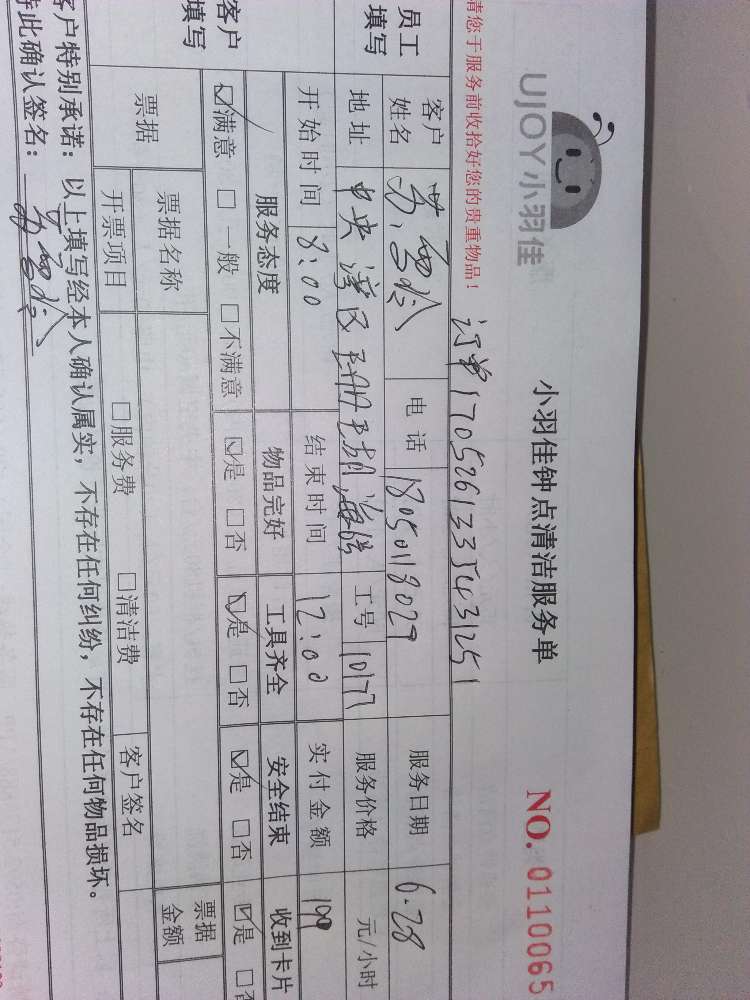 UJOY小羽佳
小羽佳钟点清洁服务单
NO. 0110065
请您于服务前收拾好您的贵重物品！
订单1705261335431251
员工填写
客户姓名 电话 18050118027 服务日期 6.28
地址 中央 工号 10177 服务价格 元/小时
开始时间 8:00 结束时间 12:00 实付金额 199
客户填写
服务态度 物品完好 工具齐全 安全结束 收到卡片
☑满意 □一般 □不满意 ☑是 □否 ☑是 □否 ☑是 □否 ☑是 □否
票据 票据名称 票据金额
开票项目 □服务费 □清洁费 客户签名
客户特别承诺：以上填写经本人确认属实，不存在任何纠纷，不存在任何物品损坏。
特此确认签名：